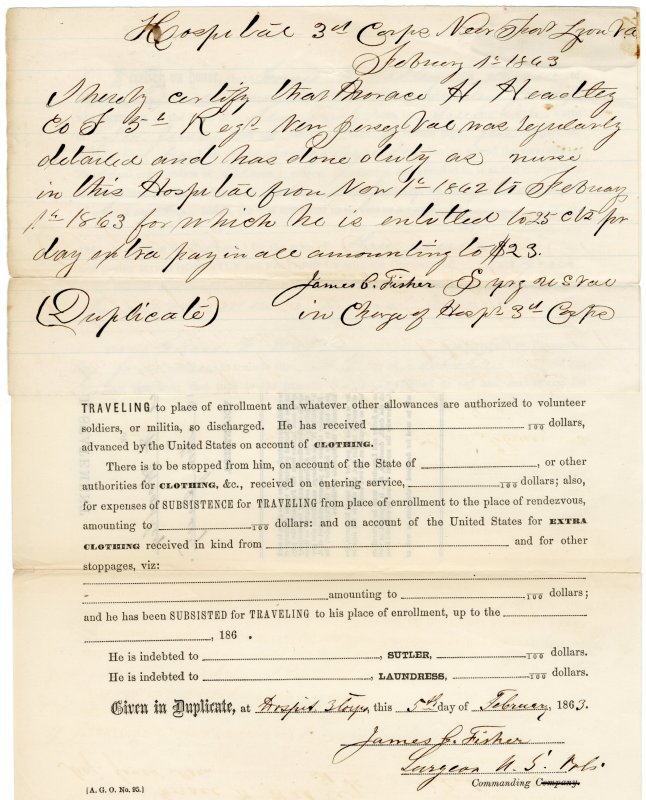 Hospital 3d Corps Near Fort Lyon Va
February 1st 1863
I hereby certify that Horace H Headley
Co F 5th Regt New Jersey Vol was regularly
detailed and has done duty as nurse
in this Hospital from Nov 1st 1862 to February
1st 1863 for which he is entitled to 25 cts pr
day extra pay in all amounting to $23.
James C. Fisher Surg U S Vol
(Duplicate) in Charge of Hospt 3d Corps
TRAVELING to place of enrollment and whatever other allowances are authorized to volunteer
soldiers, or militia, so discharged. He has received 100 dollars,
advanced by the United States on account of CLOTHING.
There is to be stopped from him, on account of the State of , or other
authorities for CLOTHING, &c., received on entering service, 100 dollars; also,
for expenses of SUBSISTENCE for TRAVELING from place of enrollment to the place of rendezvous,
amounting to 100 dollars: and on account of the United States for EXTRA
CLOTHING received in kind from and for other
stoppages, viz:
amounting to 100 dollars;
and he has been SUBSISTED for TRAVELING to his place of enrollment, up to the
, 186 .
He is indebted to , SUTLER, 100 dollars.
He is indebted to , LAUNDRESS, 100 dollars.
Given in Duplicate, at Hospit 3 Corps, this 5th day of February, 1863.
James C. Fisher
Surgeon U. S. Vols.
Commanding Company.
[A. G. O. No. 95.]